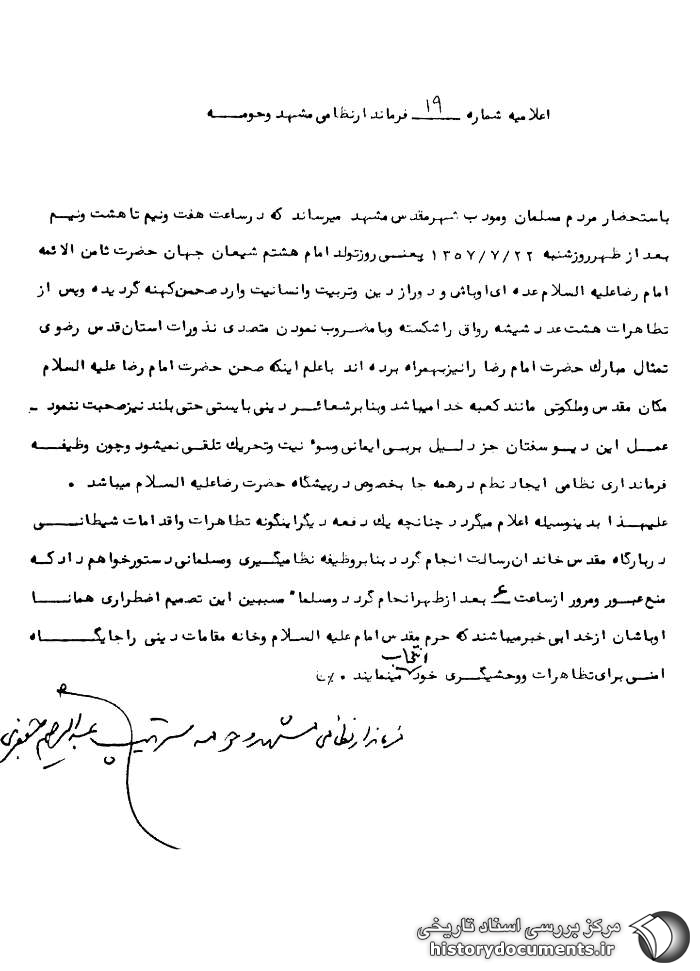 اعلامیه شماره ۱۹ فرماندارنظامی مشهد وحومه
باستحضار مردم مسلمان ومودب شهرمقدس مشهد میرساند که درساعت هفت ونیم تا هشت ونیم
بعد از ظهرروزشنبه ۱۳۵۷/۷/۲۲ یعنی روزتولد امام هشتم شیعان جهان حضرت ثامن الائمه
امام رضاعلیه السلام عده ای اوباش و دور از دین وتربیت وانسانیت وارد صحن کهنه گردیده وپس از
تظاهرات هشت عدد شیشه رواق راشکسته وبا مضروب نمودن متصدی نذورات استان قدس رضوی
تمثال مبارک حضرت امام رضا رانیزبهمراه برده اند باعلم اینکه صحن حضرت امام رضا علیه السلام
مکان مقدس وملکوتی مانند کعبه خدا میباشد وبنابرشعائر دینی بایستی حتی بلند نیزصحبت ننمود -
عمل این دیو سفتان جز دلیل بربی ایمانی وسوء نیت وتحریک تلقی نمیشود وچون وظیفه
فرمانداری نظامی ایجاد نظم در همه جا بخصوص درپیشگاه حضرت رضاعلیه السلام میباشد .
علیهذا بدینوسیله اعلام میگردد چنانچه یک دفعه دیگراینگونه تظاهرات واقدامات شیطانی
دربارگاه مقدس خاندان رسالت انجام گردد بنابروظیفه نظامیگیری ومسلمانی دستورخواهم داد که
منع عبور ومرور ازساعت ۶ بعد ازظهرانجام گردد ومسلماً مسببین این تصمیم اضطراری همانا
اوباشان ازخدا بی خبرمیباشند که حرم مقدس امام علیه السلام وخانه مقامات دینی راجایگاه
امنی برای تظاهرات ووحشیگری خود انتخاب مینمایند .
فرماندار نظامی مشهد و حومه سرتیپ عبدالرحیم جعفری
مرکز بررسی اسناد تاریخی
historydocuments.ir